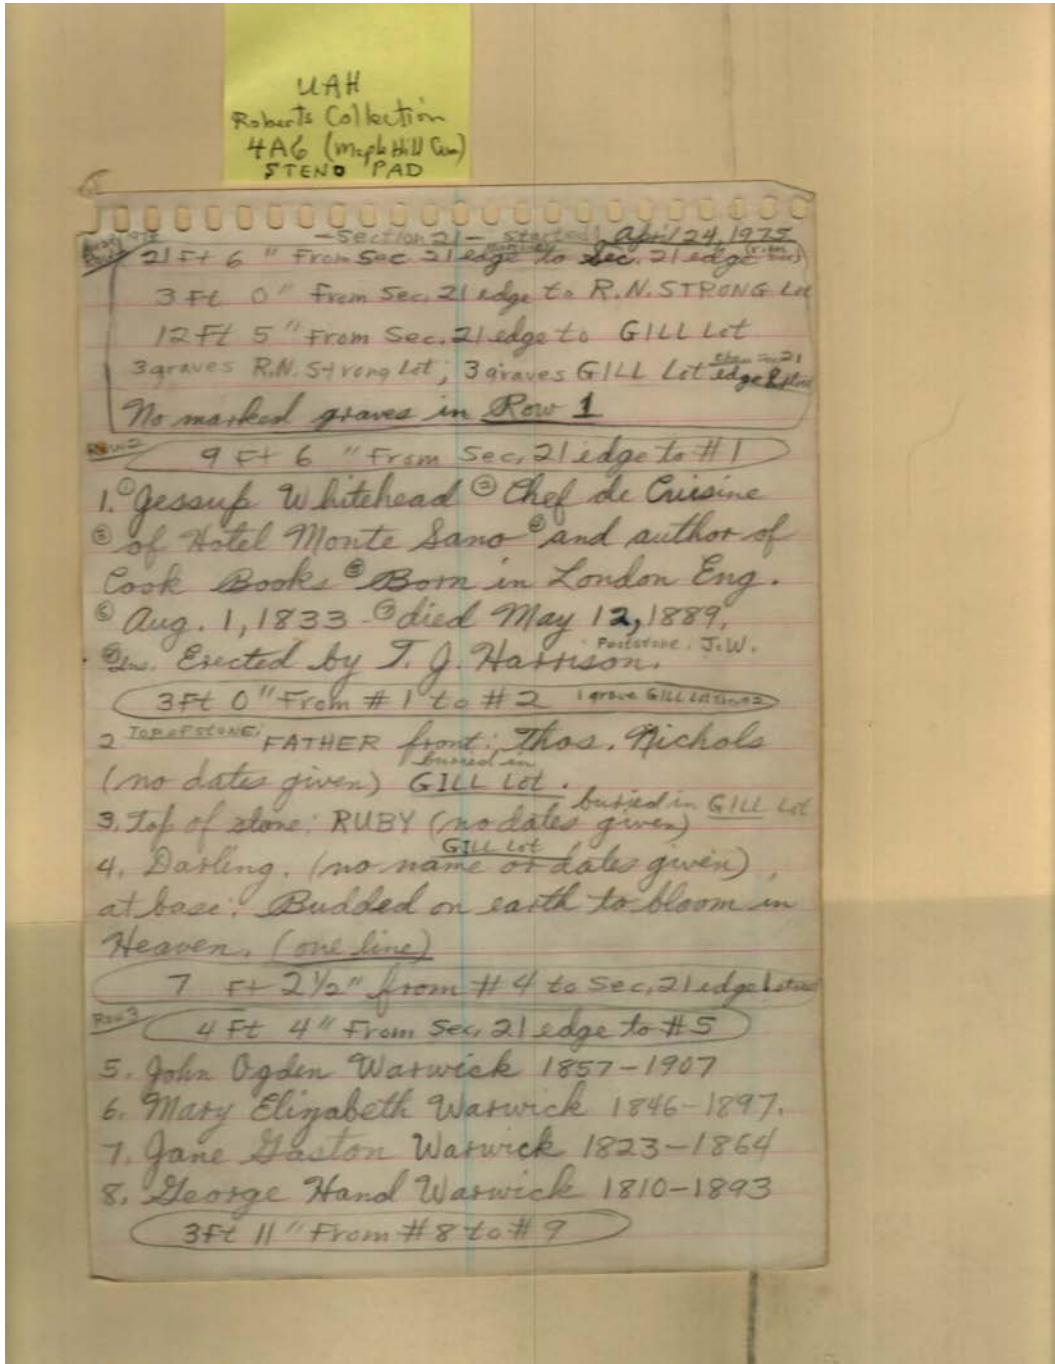 UAH
Roberts Collection
4A6 (Maple Hill Cem)
STENO PAD
-Section 21- started: April 24, 1975
21 Ft 6 " From Sec 21 edge to Sec. 21 edge
3 Ft 0" From Sec. 21 edge to R.N. STRONG Lot
12 Ft 5 " From Sec. 21 edge to GILL Lot
3 graves R.N. Strong Lot; 3 graves GILL Lot
No marked graves in Row 1
Row 2
9 Ft 6 " From Sec. 21 edge to #1
1. ① Jessup Whitehead ② Chef de Cuisine
③ of Hotel Monte Sano ④ and author of
Cook Books ⑤ Born in London Eng.
⑥ Aug. 1, 1833 - ⑦ died May 12, 1889,
Erected by T. J. Harrison. Footstone: J.W.
3 Ft 0" From #1 to #2 1 grave GILL Lot
2 TOP OF STONE: FATHER front: Thos. Nichols
(no dates given) buried in GILL Lot.
3. Top of stone: RUBY (no dates given) buried in GILL Lot
4. Darling. (no name or dates given), GILL Lot
at base: Budded on earth to bloom in
Heaven. (one line)
7 Ft 2½" from #4 to Sec. 21 edge
Row 3
4 Ft 4" From Sec. 21 edge to #5
5. John Ogden Warwick 1857-1907
6. Mary Elizabeth Warwick 1846-1897.
7. Jane Gaston Warwick 1823-1864
8. George Hand Warwick 1810-1893
3 Ft 11" From #8 to #9